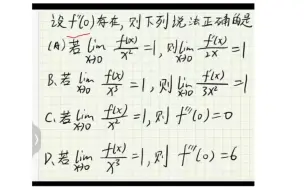 设 f''(0) 存在, 则下列说法正确的是
(A) 若 lim_{x→0} f(x)/x² = 1, 则 lim_{x→0} f'(x)/2x = 1
B. 若 lim_{x→0} f(x)/x³ = 1, 则 lim_{x→0} f'(x)/3x² = 1
C. 若 lim_{x→0} f(x)/x² = 1, 则 f'''(0) = 0
D. 若 lim_{x→0} f(x)/x³ = 1, 则 f'''(0) = 6